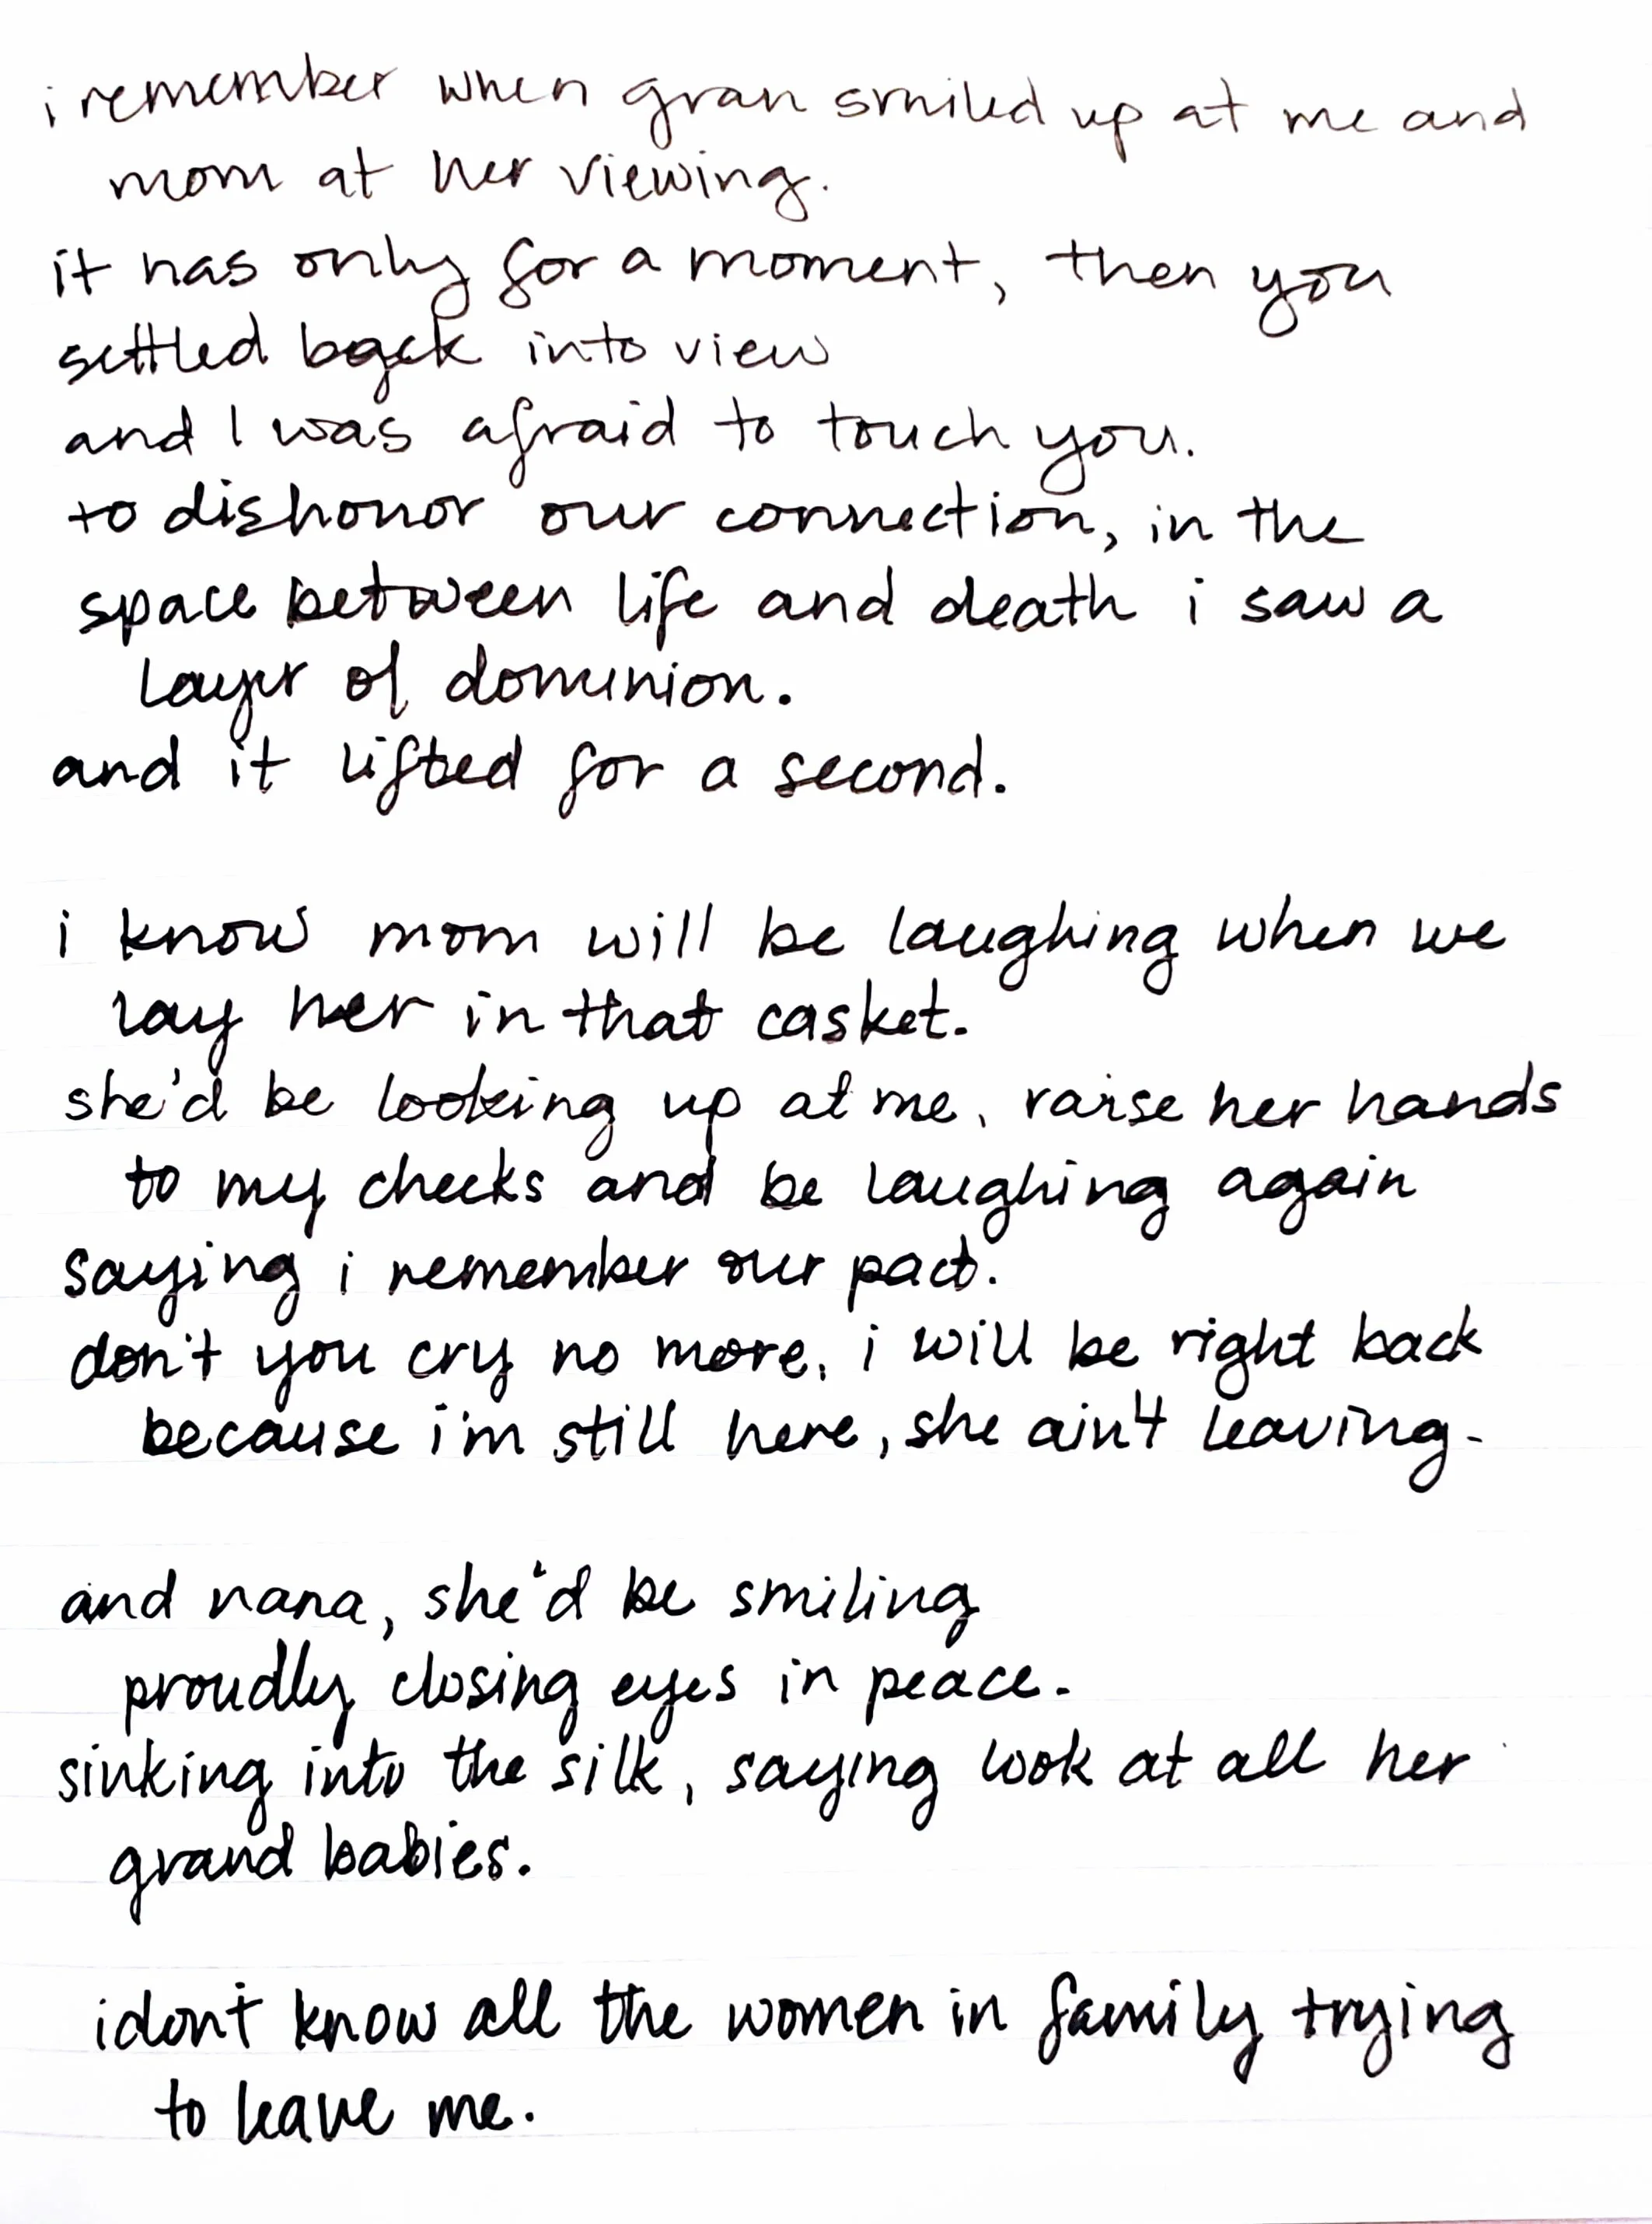 i remember when gran smiled up at me and
mom at her viewing.
it has only for a moment, then you
settled back into view
and I was afraid to touch you.
to dishonor our connection, in the
space between life and death i saw a
layer of dominion.
and it lifted for a second.
i know mom will be laughing when we
lay her in that casket.
she'd be looking up at me, raise her hands
to my cheeks and be laughing again
saying i remember our pact.
don't you cry no more, i will be right back
because i'm still here, she ain't leaving.
and nana, she'd be smiling
proudly closing eyes in peace.
sinking into the silk, saying look at all her
grand babies.
i don't know all the women in family trying
to leave me.